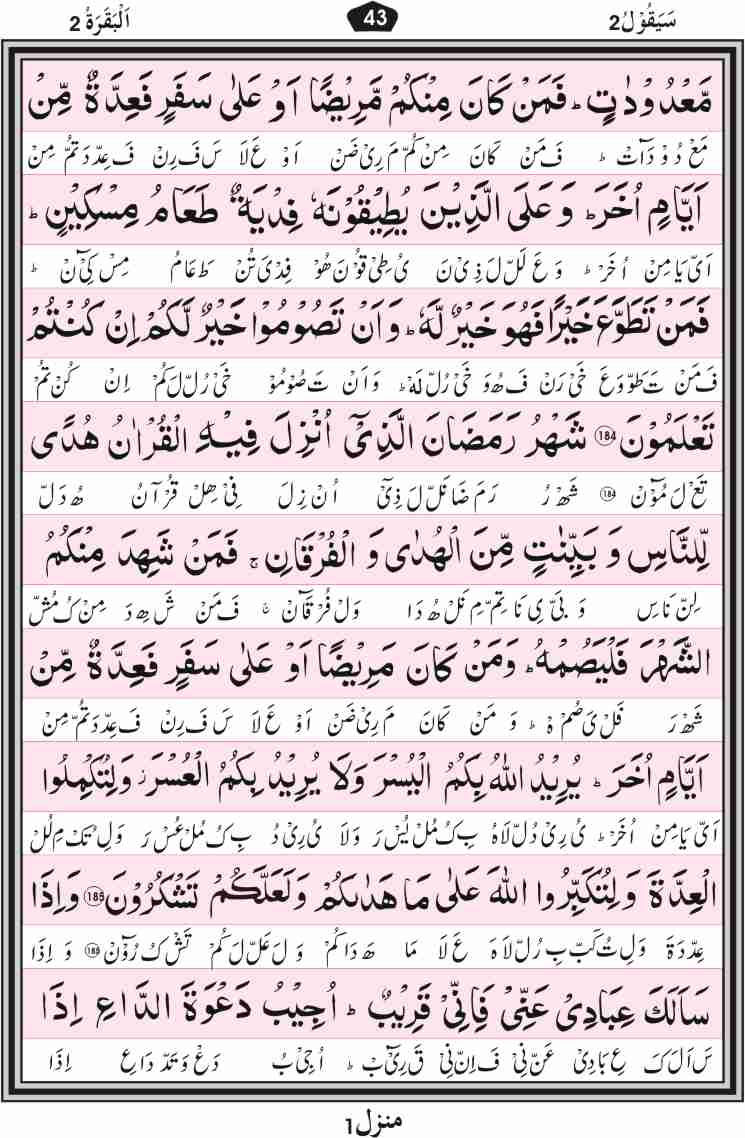 سَيَقُوْلُ2 43 اَلْبَقَرَةُ 2
مَّعْدُوْدٰتٍ ؕ فَمَنْ كَانَ مِنْكُمْ مَّرِيْضًا اَوْ عَلٰى سَفَرٍ فَعِدَّةٌ مِّنْ
مَعْ دُوْ دَآتْ ؕ فَ مَنْ كَانَ مِنْ كُمْ مَ رِىْ ضَنْ اَوْ عَ لَا سَ فَ رِنْ فَ عِدْ دَ تُمْ مِنْ
اَيَّامٍ اُخَرَ ؕ وَ عَلَى الَّذِيْنَ يُطِيْقُوْنَهٗ فِدْيَةٌ طَعَامُ مِسْكِيْنٍ ؕ
اَىْ يَا مِنْ اُ خَرْ ؕ وَ عَ لَلْ لَ ذِىْ نَ يُ طِىْ قُوْ نَ هُوْ فِدْ ىَ تُنْ طَ عَامُ مِسْ كِىْٓ نْ ؕ
فَمَنْ تَطَوَّعَ خَيْرًا فَهُوَ خَيْرٌ لَّهٗ ؕ وَ اَنْ تَصُوْمُوْا خَيْرٌ لَّكُمْ اِنْ كُنْتُمْ
فَ مَنْ تَ طَوْ وَ عَ خَىْ رَنْ فَ هُ وَ خَىْ رُلْ لَهْ ؕ وَ اَنْ تَ صُوْ مُوْ خَىْ رُلْ لَ كُمْ اِنْ كُنْ تُمْ
تَعْلَمُوْنَ 184 شَهْرُ رَمَضَانَ الَّذِىْٓ اُنْزِلَ فِيْهِ الْقُرْاٰنُ هُدًى
تَعْ لَ مُوْٓنْ 184 شَهْ رُ رَ مَ ضَا نَلْ لَ ذِىْٓ اُنْ زِ لَ فِىْ هِلْ قُرْ آنُ هُ دَلْ
لِّلنَّاسِ وَ بَيِّنٰتٍ مِّنَ الْهُدٰى وَ الْفُرْقَانِ ۚ فَمَنْ شَهِدَ مِنْكُمُ
لِنْ نَاسِ وَ بَىْ ىِ نَا تِمْ مِ نَلْ هُ دَا وَلْ فُرْ قَآنْ ۚ فَ مَنْ شَ هِ دَ مِنْ كُ مُشْ
الشَّهْرَ فَلْيَصُمْهُ ؕ وَمَنْ كَانَ مَرِيْضًا اَوْ عَلٰى سَفَرٍ فَعِدَّةٌ مِّنْ
شَهْ رَ فَلْ ىَ صُمْ هْ ؕ وَ مَنْ كَانَ مَ رِىْ ضَنْ اَوْ عَ لَا سَ فَ رِنْ فَ عِدْ دَ تُمْ مِنْ
اَيَّامٍ اُخَرَ ؕ يُرِيْدُ اللّٰهُ بِكُمُ الْيُسْرَ وَلَا يُرِيْدُ بِكُمُ الْعُسْرَ ؗ وَلِتُكْمِلُوا
اَىْ يَا مِنْ اُ خَرْ ؕ يُ رِىْ دُلْ لَاهُ بِ كُ مُلْ يُسْ رَ وَلَا يُ رِىْ دُ بِ كُ مُلْ عُسْ رَ وَ لِ تُكْ مِ لُلْ
الْعِدَّةَ وَ لِتُكَبِّرُوا اللّٰهَ عَلٰى مَا هَدٰىكُمْ وَ لَعَلَّكُمْ تَشْكُرُوْنَ 185 وَ اِذَا
عِدْ دَ ةَ وَ لِ تُ كَبْ بِ رُلْ لَا هَ عَ لَا مَا هَ دَا كُمْ وَ لَ عَلْ لَ كُمْ تَشْ كُ رُوْٓنْ 185 وَ اِذَا
سَاَلَكَ عِبَادِىْ عَنِّىْ فَاِنِّىْ قَرِيْبٌ ؕ اُجِيْبُ دَعْوَةَ الدَّاعِ اِذَا
سَ اَلَ كَ عِ بَادِىْ عَنْ نِىْ فَ اِنْ نِىْ قَ رِىْٓ بْ ؕ اُ جِىْ بُ دَعْ وَ تَدْ دَاعِ اِذَا
منزل 1